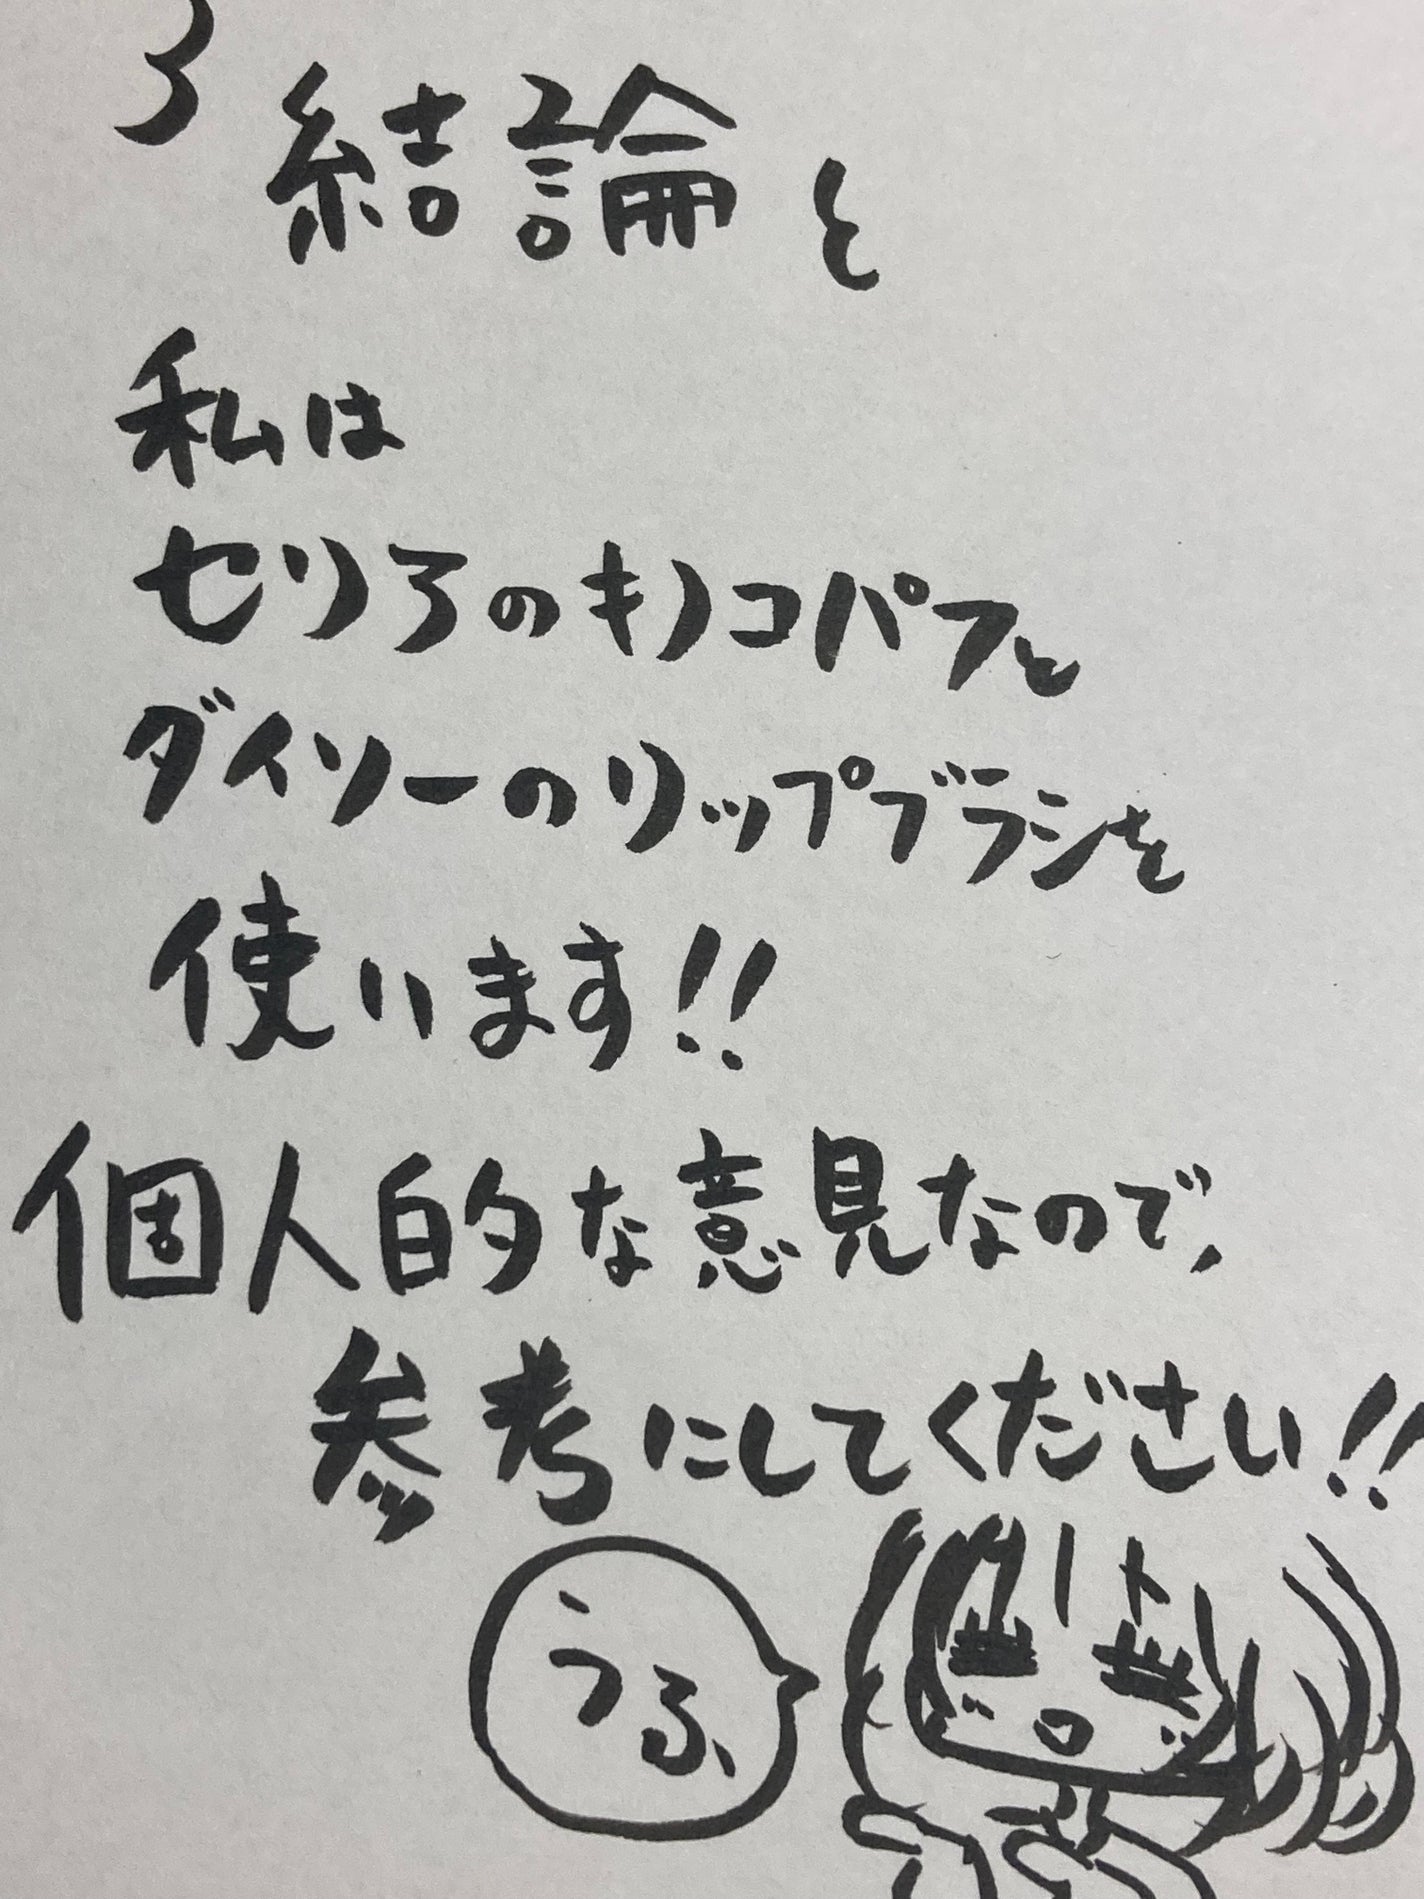 結論と
私は
セリアのキノコパフと
ダイソーのリップブラシを
使います!!
個人的な意見なので、
参考にしてください!!
うふ